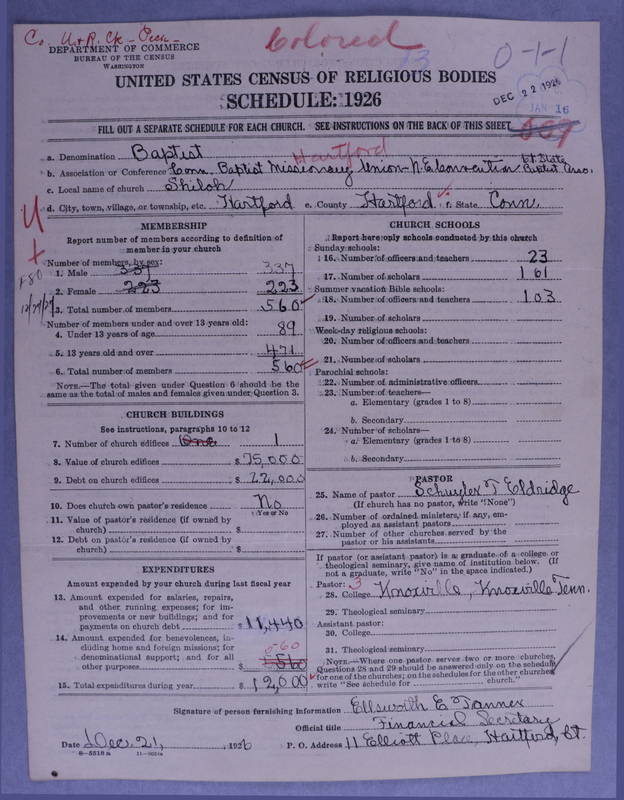 Co. U+R. Ck - Pech -
Colored
DEPARTMENT OF COMMERCE
BUREAU OF THE CENSUS
WASHINGTON
13
0-1-1
UNITED STATES CENSUS OF RELIGIOUS BODIES
SCHEDULE: 1926
DEC 22 1926
JAN 16
FILL OUT A SEPARATE SCHEDULE FOR EACH CHURCH. SEE INSTRUCTIONS ON THE BACK OF THIS SHEET
a. Denomination Baptist
Hartford
b. Association or Conference Conn. Baptist Missionary Union - N.E. Convention Ct. State Baptist Asso.
c. Local name of church Shiloh
d. City, town, village, or township, etc. Hartford e. County Hartford f. State Conn.
MEMBERSHIP
Report number of members according to definition of
member in your church
Number of members, by sex:
1. Male 337 337
2. Female 223 223
3. Total number of members 560
Number of members under and over 13 years old:
4. Under 13 years of age 89
5. 13 years old and over 471
6. Total number of members 560
NOTE.—The total given under Question 6 should be the
same as the total of males and females given under Question 3.
CHURCH BUILDINGS
See instructions, paragraphs 10 to 12
7. Number of church edifices One 1
8. Value of church edifices $ 75,000
9. Debt on church edifices $ 22,000
10. Does church own pastor's residence No
(Yes or No)
11. Value of pastor's residence (if owned by
church) $
12. Debt on pastor's residence (if owned by
church) $
EXPENDITURES
Amount expended by your church during last fiscal year
13. Amount expended for salaries, repairs,
and other running expenses; for im-
provements or new buildings; and for
payments on church debt $ 11,440
14. Amount expended for benevolences, in-
cluding home and foreign missions; for
denominational support; and for all
other purposes 560 560
15. Total expenditures during year $ 12,000
CHURCH SCHOOLS
Report here only schools conducted by this church
Sunday schools:
16. Number of officers and teachers 23
17. Number of scholars 161
Summer vacation Bible schools:
18. Number of officers and teachers 103
19. Number of scholars
Week-day religious schools:
20. Number of officers and teachers
21. Number of scholars
Parochial schools:
22. Number of administrative officers
23. Number of teachers—
a. Elementary (grades 1 to 8)
b. Secondary
24. Number of scholars—
a. Elementary (grades 1 to 8)
b. Secondary
PASTOR
25. Name of pastor Schuyler T Eldridge
(If church has no pastor, write "None")
26. Number of ordained ministers, if any, em-
ployed as assistant pastors
27. Number of other churches served by the
pastor or his assistants
If pastor (or assistant pastor) is a graduate of a college or
theological seminary, give name of institution below. (If
not a graduate, write "No" in the space indicated.)
Pastor: 3
28. College Knoxville, Knoxville Tenn.
29. Theological seminary
Assistant pastor:
30. College
31. Theological seminary
NOTE.—Where one pastor serves two or more churches,
Questions 28 and 29 should be answered only on the schedule
for one of the churches; on the schedules for the other churches
write "See schedule for church."
Signature of person furnishing information Ellsworth E Tanner
Official title Financial Secretary
Date Dec. 21, 1926 P. O. Address 11 Elliott Place, Hartford, Ct.